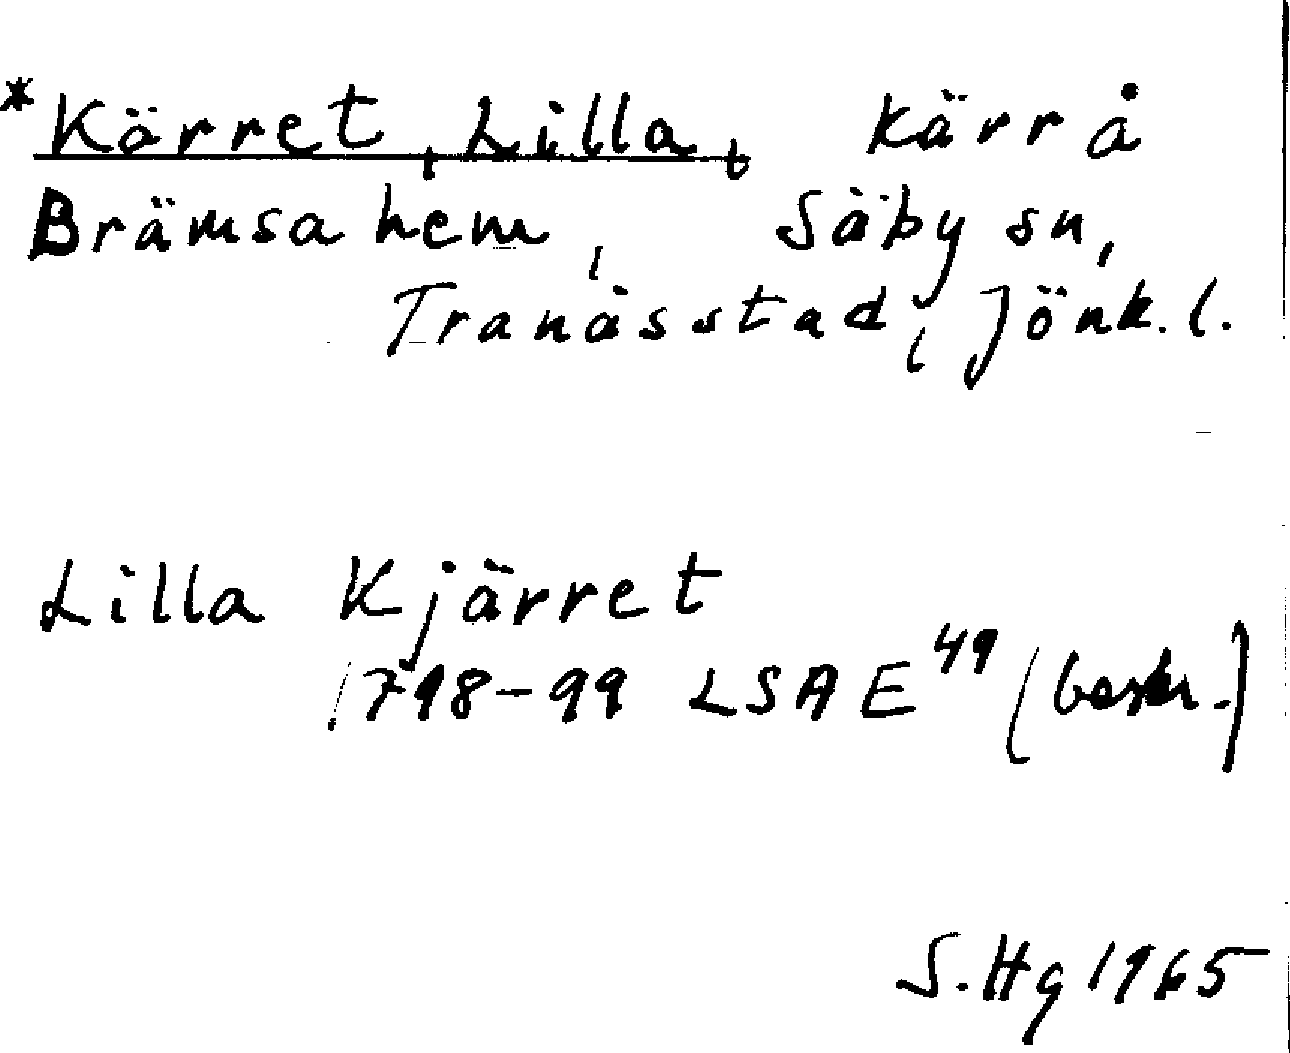 *Kärret, Lilla, kärr å
Brämsahem, Säby sn,
Tranås stad, Jönk. l.
Lilla Kjärret
1798-99 LSA E 49 (beskr.)
S. Hg 1965